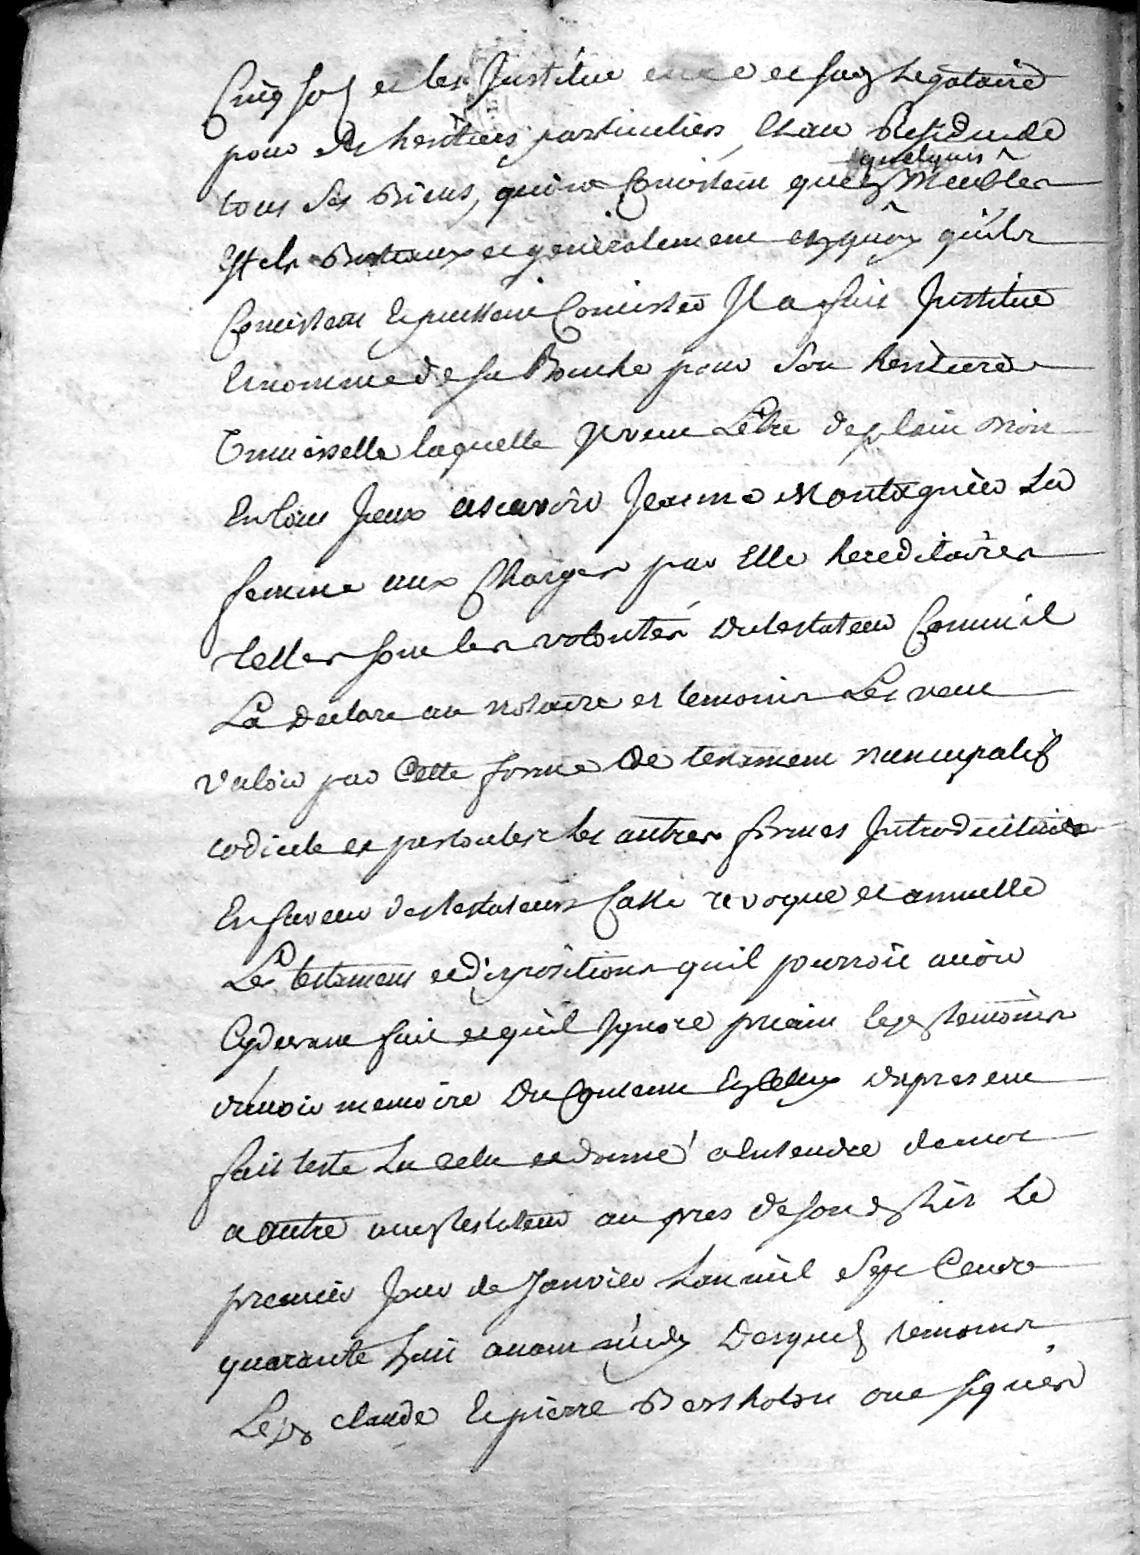 Cinq sols et les Institue et ses legataire
pour ses heritiers particuliers, Et au Residu de
tous ses Biens, qu'on Consistent quelques Meubles
Et Bestiaux et generalement en quoy qu'ils
Consistent et puissent Consister Il a fait Institue
Et nomme de sa Bouche pour son heritiere
Universelle laquelle Il veut Letre de plein droit
En tous Jeux ascavoir Jeanne Montagnier sa
femme aux Charges par Elle hereditaires
telles sont les volontés du testateur Comme il
La declare au notaire et temoins Les veut
valoir par Cette forme de testament nuncupatif
codicile et par toutes les autres formes Introduitties
En faveur des testateurs Casse revoque et annulle
Les testamens et dispositions quil pourroit avoir
Cydevant fait et quil Ignore priant lesds temoins
d'avoir memoire du Contenu En Celuy du present
fait leste Lu relu et donné a Entendre de mot
a autre aud testateur au pres de son d Lit Le
premier Jour de Janvier Lan mil Sept Cents
quarante huit avant midy Desquels temoins
Lesds claude Et pierre Bertholon ont signés